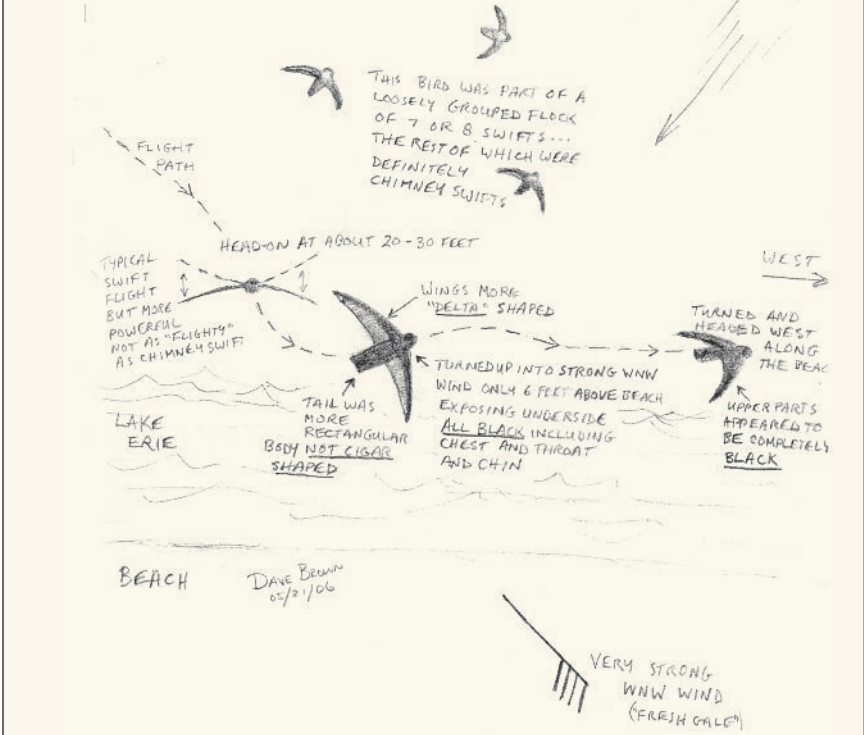 THIS BIRD WAS PART OF A
LOOSELY GROUPED FLOCK
OF 7 OR 8 SWIFTS...
THE REST OF WHICH WERE
DEFINITELY
CHIMNEY SWIFTS
FLIGHT
PATH
HEAD-ON AT ABOUT 20-30 FEET
TYPICAL
SWIFT
FLIGHT
BUT MORE
POWERFUL
NOT AS "FLIGHTY"
AS CHIMNEY SWIFT
WINGS MORE
"DELTA" SHAPED
WEST
TURNED AND
HEADED WEST
ALONG
THE BEAC
TURNED UP INTO STRONG WNW
WIND ONLY 6 FEET ABOVE BEACH
EXPOSING UNDERSIDE
ALL BLACK INCLUDING
CHEST AND THROAT
AND CHIN
TAIL WAS
MORE
RECTANGULAR
BODY NOT CIGAR
SHAPED
UPPERPARTS
APPEARED TO
BE COMPLETELY
BLACK
LAKE
ERIE
BEACH
DAVE BROWN
05/21/06
VERY STRONG
WNW WIND
("FRESH GALE")